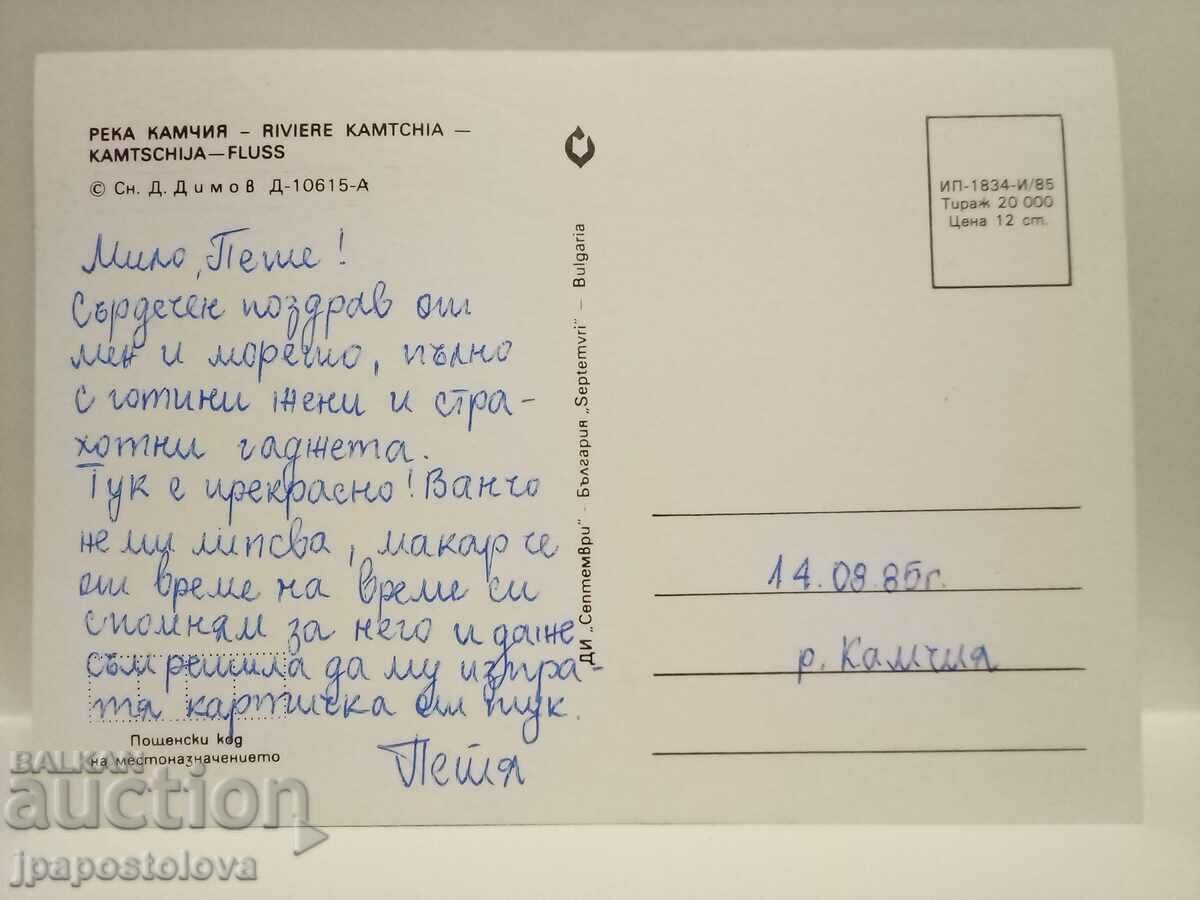 РЕКА КАМЧИЯ – RIVIERE KAMTCHIA —
KAMTSCHIJA—FLUSS
© Сн. Д. Димов Д-10615-А
Мило, Пеше!
Сърдечен поздрав от
мен и морето, пълно
с готини жени и стра-
хотни гаджета.
Тук е прекрасно! Ванчо
не ми липсва, макар че
от време на време си
спомням за него и даже
съм решила да му изпра-
тя картичка от тук.
Петя
Пощенски код
на местоназначението
ДИ „Септември" - България „Septemvri" – Bulgaria
ИП-1834-И/85
Тираж 20 000
Цена 12 ст.
14.08.85г.
р. Камчия
BALKAN
auction
jpapostolova